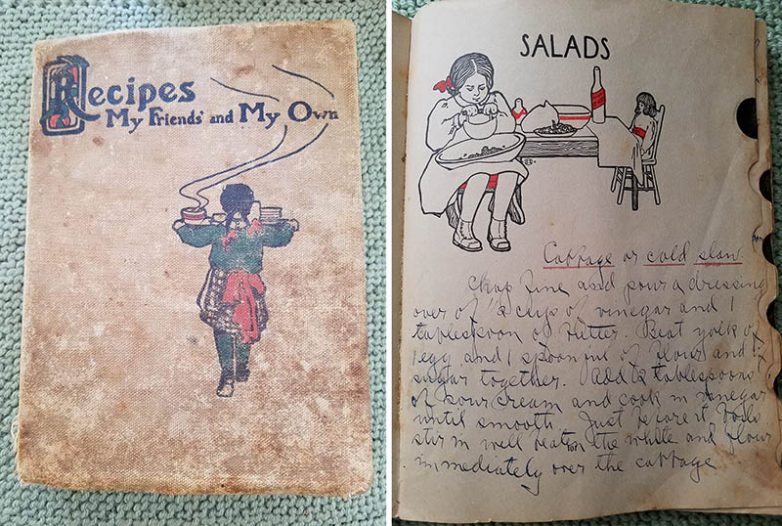 Recipes
My Friends' and My Own
SALADS
Cabbage or cold slaw
Chop fine and pour a dressing
over of ½ cup of vinegar and 1
tablespoon of butter. Beat yolk of
1 egg and 1 spoonful of flour and
sugar together. Add 2 tablespoons
of sour cream and cook in vinegar
until smooth. Just before it boils
stir in well beaten the white and pour
immediately over the cabbage